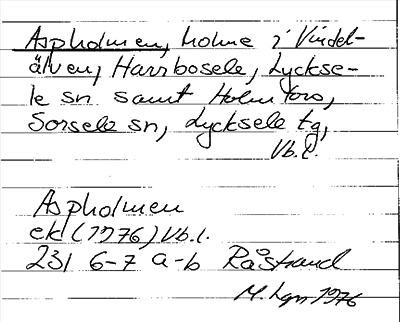 Aspholmen, holme i Vindel-
älven, Harrbosele, Lycksе-
le sn samt Holmfors,
Sorsele sn, Lycksele tg,
Vb.l.
Aspholmen
ek (1976) Vb.l.
23I 6-7 a-b Råstrand
M. Lgn 1976